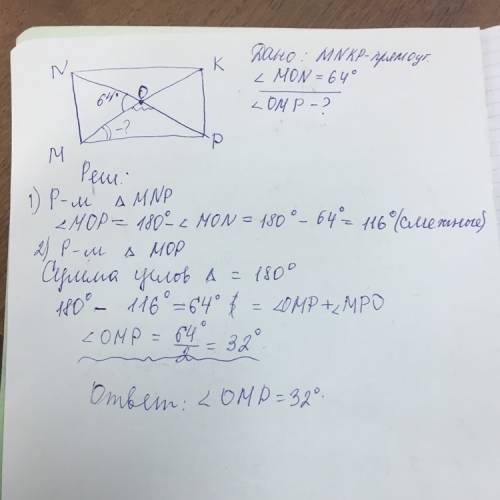 N
K
O
64°
-?
M
P
Дано: MNKP-прямоуг.
∠ MON = 64°
∠ OMP - ?
Реш:
1) Р-м Δ MNP
∠MOP = 180° - ∠ MON = 180° - 64° = 116° (смежные)
2) Р-м Δ MOP
Сумма углов Δ = 180°
180° - 116° = 64° = ∠OMP + ∠MPO
∠OMP = 64°/2 = 32°.
Ответ: ∠ OMP = 32°.